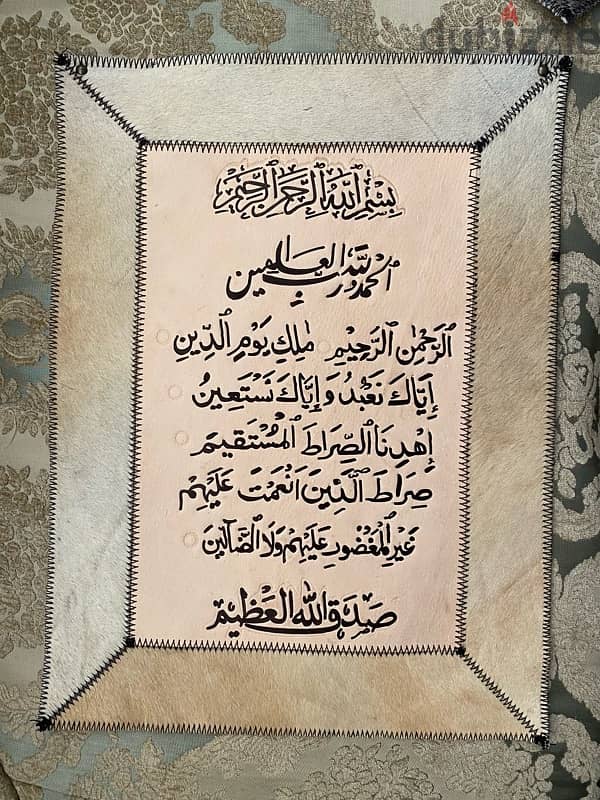 dubizzle
بِسْمِ اللَّهِ الرَّحْمٰنِ الرَّحِيمِ
الْحَمْدُ لِلَّهِ رَبِّ الْعَالَمِينَ
الرَّحْمٰنِ الرَّحِيمِ مٰلِكِ يَوْمِ الدِّينِ
إِيَّاكَ نَعْبُدُ وَإِيَّاكَ نَسْتَعِينُ
إِهْدِنَا الصِّرَاطَ الْمُسْتَقِيمَ
صِرَاطَ الَّذِينَ أَنْعَمْتَ عَلَيْهِمْ
غَيْرِ الْمَغْضُوبِ عَلَيْهِمْ وَلَا الضَّالِّينَ
صَدَقَ اللهُ الْعَظِيمْ